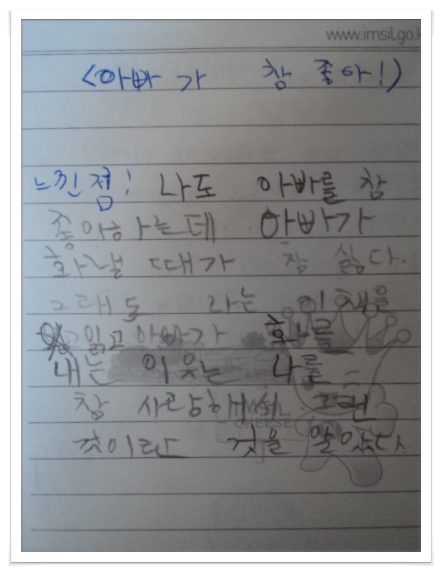 www.imsil.go.k
<아빠가 참 좋아!>
느낀점! 나도 아빠를 참
좋아하는데 아빠가
화낼 때가 참 싫다.
그래도 나는 이 책을
읽고 아빠가 화를
내는 이웃는 나를
참 사랑해서 그런
것이란 것을 알았다
CHEESE